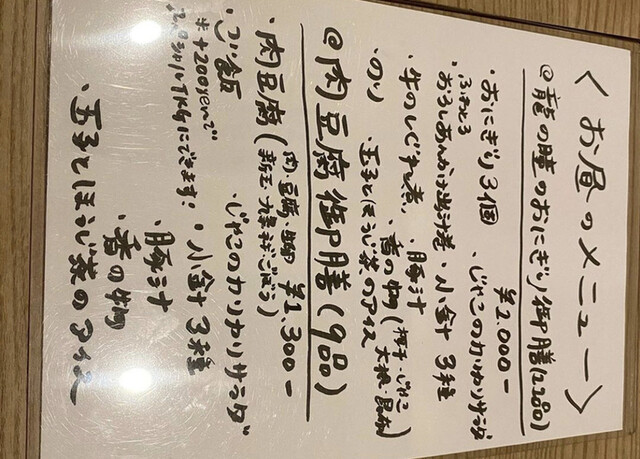 〈お昼のメニュー〉
@龍の瞳のおにぎり御膳(12品)
¥2,000ー
・おにぎり3個 ・じゃこのカリカリサラダ
ふわとろ
おろしあんかけ出汁巻 ・小鉢3種
・牛のしぐれ煮 ・豚汁
・のり ・香の物(
大根・昆布)
・玉子とほうじ茶のアイス
@肉豆腐御膳(9品)
¥1,300ー
・肉豆腐(肉・豆腐・
新玉・九条ネギ・ごぼう)
・ご飯 ・じゃこのカリカリサラダ
※+200yenで
スペシャルTKGにできます!
・小鉢3種
・豚汁
・香の物
・玉子とほうじ茶のアイス